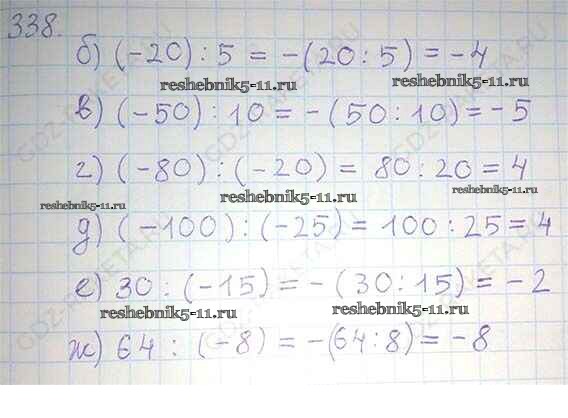 338.
б) (-20) : 5 = -(20 : 5) = -4
reshebnik5-11.ru reshebnik5-11.ru
в) (-50) : 10 = -(50 : 10) = -5
г) (-80) : (-20) = 80 : 20 = 4
reshebnik5-11.ru reshebnik5-11.ru reshebnik5-11.ru
д) (-100) : (-25) = 100 : 25 = 4
е) 30 : (-15) = -(30 : 15) = -2
reshebnik5-11.ru reshebnik5-11.ru
ж) 64 : (-8) = -(64 : 8) = -8